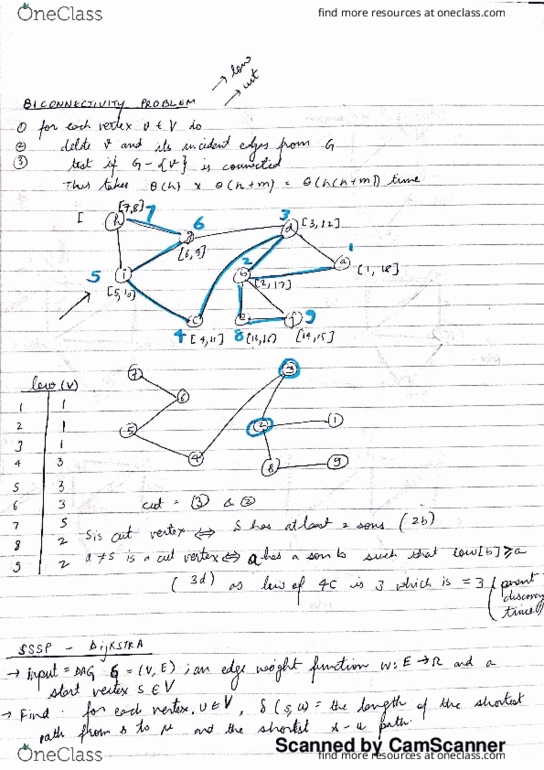 OneClass
find more resources at oneclass.com
→ low
→ cut
BICONNECTIVITY PROBLEM
① for each vertex v ∈ V do
② delete v and its incident edges from G
③ test if G-{v} is connected
This takes θ(n) x θ(n+m) = θ(n(n+m)) time
[7,8] 7
6
3
[3,12]
h
g
d
[6,9]
1
2
a
5
i
b
(1,18]
[2,17]
[5,10]
c
e
f
9
4 [4,11] 8 (13,16) [14,15]
low(v)
1 1
2 1
3 1
4 3
5 3
6 3
7 5
8 2
9 2
7
3
6
5
2
1
4
8
9
cut = ③ & ②
S is cut vertex ⇔ S has at least 2 sons (2b)
a≠s is a cut vertex ⇔ a has a son b such that low[b] ≥ a
(3d) as low of 4C is 3 which is = 3 (parent discovery time)
SSSP - DijKSTRA
→ input = DAG G = (V,E); an edge weight function w: E→R and a
start vertex s∈V
→ Find: for each vertex, u∈V, δ(s,u) = the length of the shortest
path from s to u and the shortest s-u path.
OneClass
Scanned by CamScanner
find more resources at oneclass.com